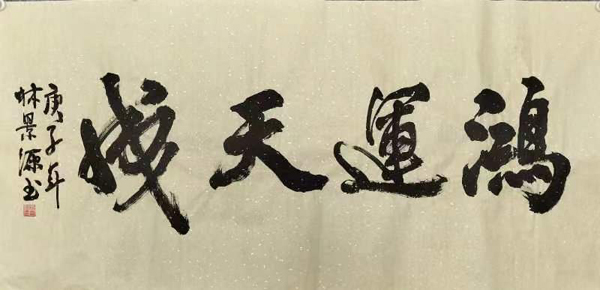 鴻運天成
庚子年
林景源书